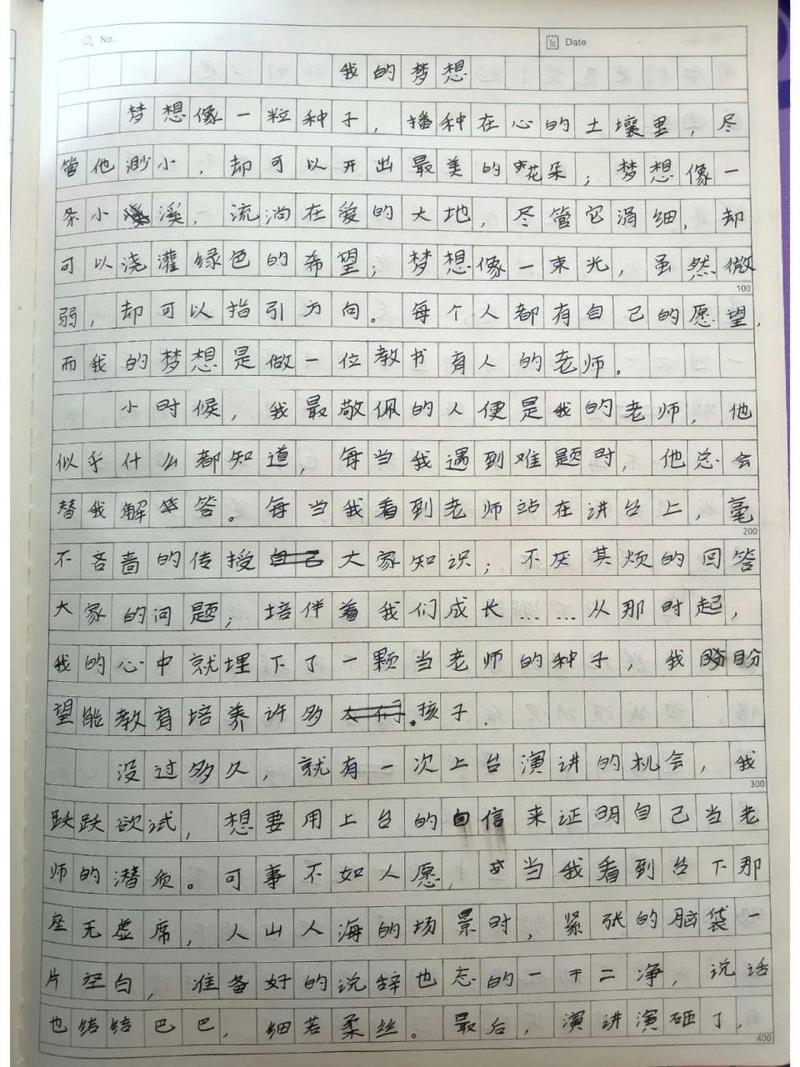 No.
Date
我的梦想
梦想像一粒种子，播种在心的土壤里，尽
管他渺小，却可以开出最美的花朵；梦想像一
条小溪，流淌在爱的大地，尽管它涓细，却
可以浇灌绿色的希望；梦想像一束光，虽然微
100
弱，却可以指引方向。每个人都有自己的愿望，
而我的梦想是做一位教书育人的老师。
小时候，我最敬佩的人便是我的老师，他
似乎什么都知道，每当我遇到难题时，他总会
替我解答。每当我看到老师站在讲台上，毫
200
不吝啬的传授自己大家知识；不厌其烦的回答
大家的问题；培伴着我们成长……从那时起，
我的心中就埋下了一颗当老师的种子，我盼盼
望能教育培养许多孩子.
没过多久，就有一次上台演讲的机会，我
300
跃跃欲试，想要用上台的自信来证明自己当老
师的潜质。可事不如人愿，当我看到台下那
座无虚席，人山人海的场景时，紧张的脑袋一
片空白，准备好的说辞也忘的一干二净，说话
也结结巴巴，细若柔丝。最后，演讲演砸了，
400